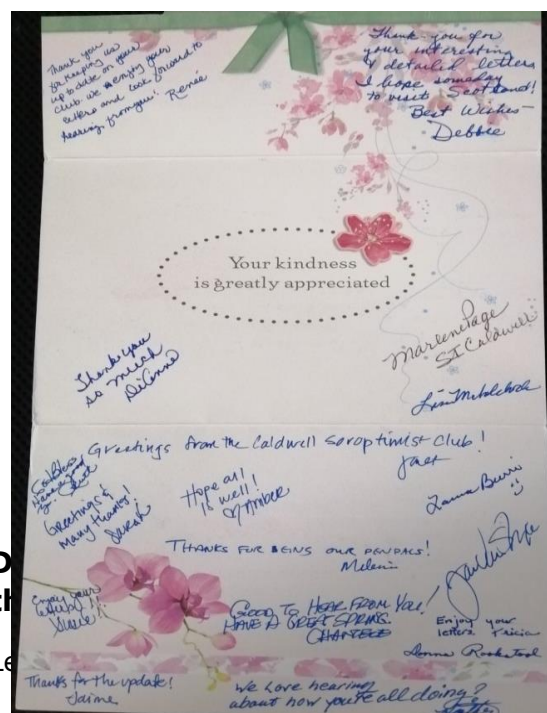 Thank you
for keeping us
up to date on your
club. we enjoy your
letters and look forward to
hearing from you! Renée
Thank you for
your interesting
& detailed letters
I hope someday
to visit Scotland!
Best Wishes-
Debbie
Your kindness
is greatly appreciated
Thank you
so much
DiAnne
Marlene Page
SI Caldwell
Greetings from the Caldwell Soroptimist Club!
Janet
God Bless
Greetings &
Many thanks!
Sarah
Hope all
is well!
Amber
THANKS FOR BEING OUR PENPALS!
GOOD TO HEAR FROM YOU!
HAVE A GREAT SPRING.
Enjoy your
Enjoy your
letters Tricia
Donna
Thanks for the update!
Jaime
We Love hearing
about how you're all doing?